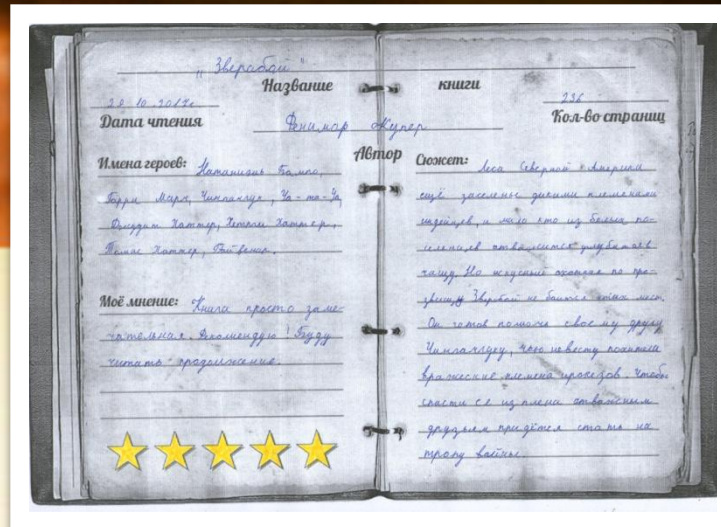 „Зверобой"
Название книги
20.10.2017г
236
Дата чтения
Фенимор Купер
Кол-во страниц
Автор
Имена героев: Натаниэль Бампо,
Гарри Марч, Чингачгук, Уа-та-Уа,
Джудит Хаттер, Хетти Хаттер,
Томас Хаттер,
Моё мнение: Книга просто заме-
чательная. Рекомендую! Буду
читать продолжение.
Сюжет: Леса Северной Америки
ещё заселены дикими племенами
индейцев, и мало кто из белых по-
селенцев отважится углубиться в
чащу. Но искусный охотник по про-
звищу Зверобой не боится этих мест.
Он готов помочь своему другу
Чингачгуку, чью невесту похитили
вражеские племена ирокезов. Чтобы
спасти её из плена отважным
друзьям придётся стать на
тропу войны.